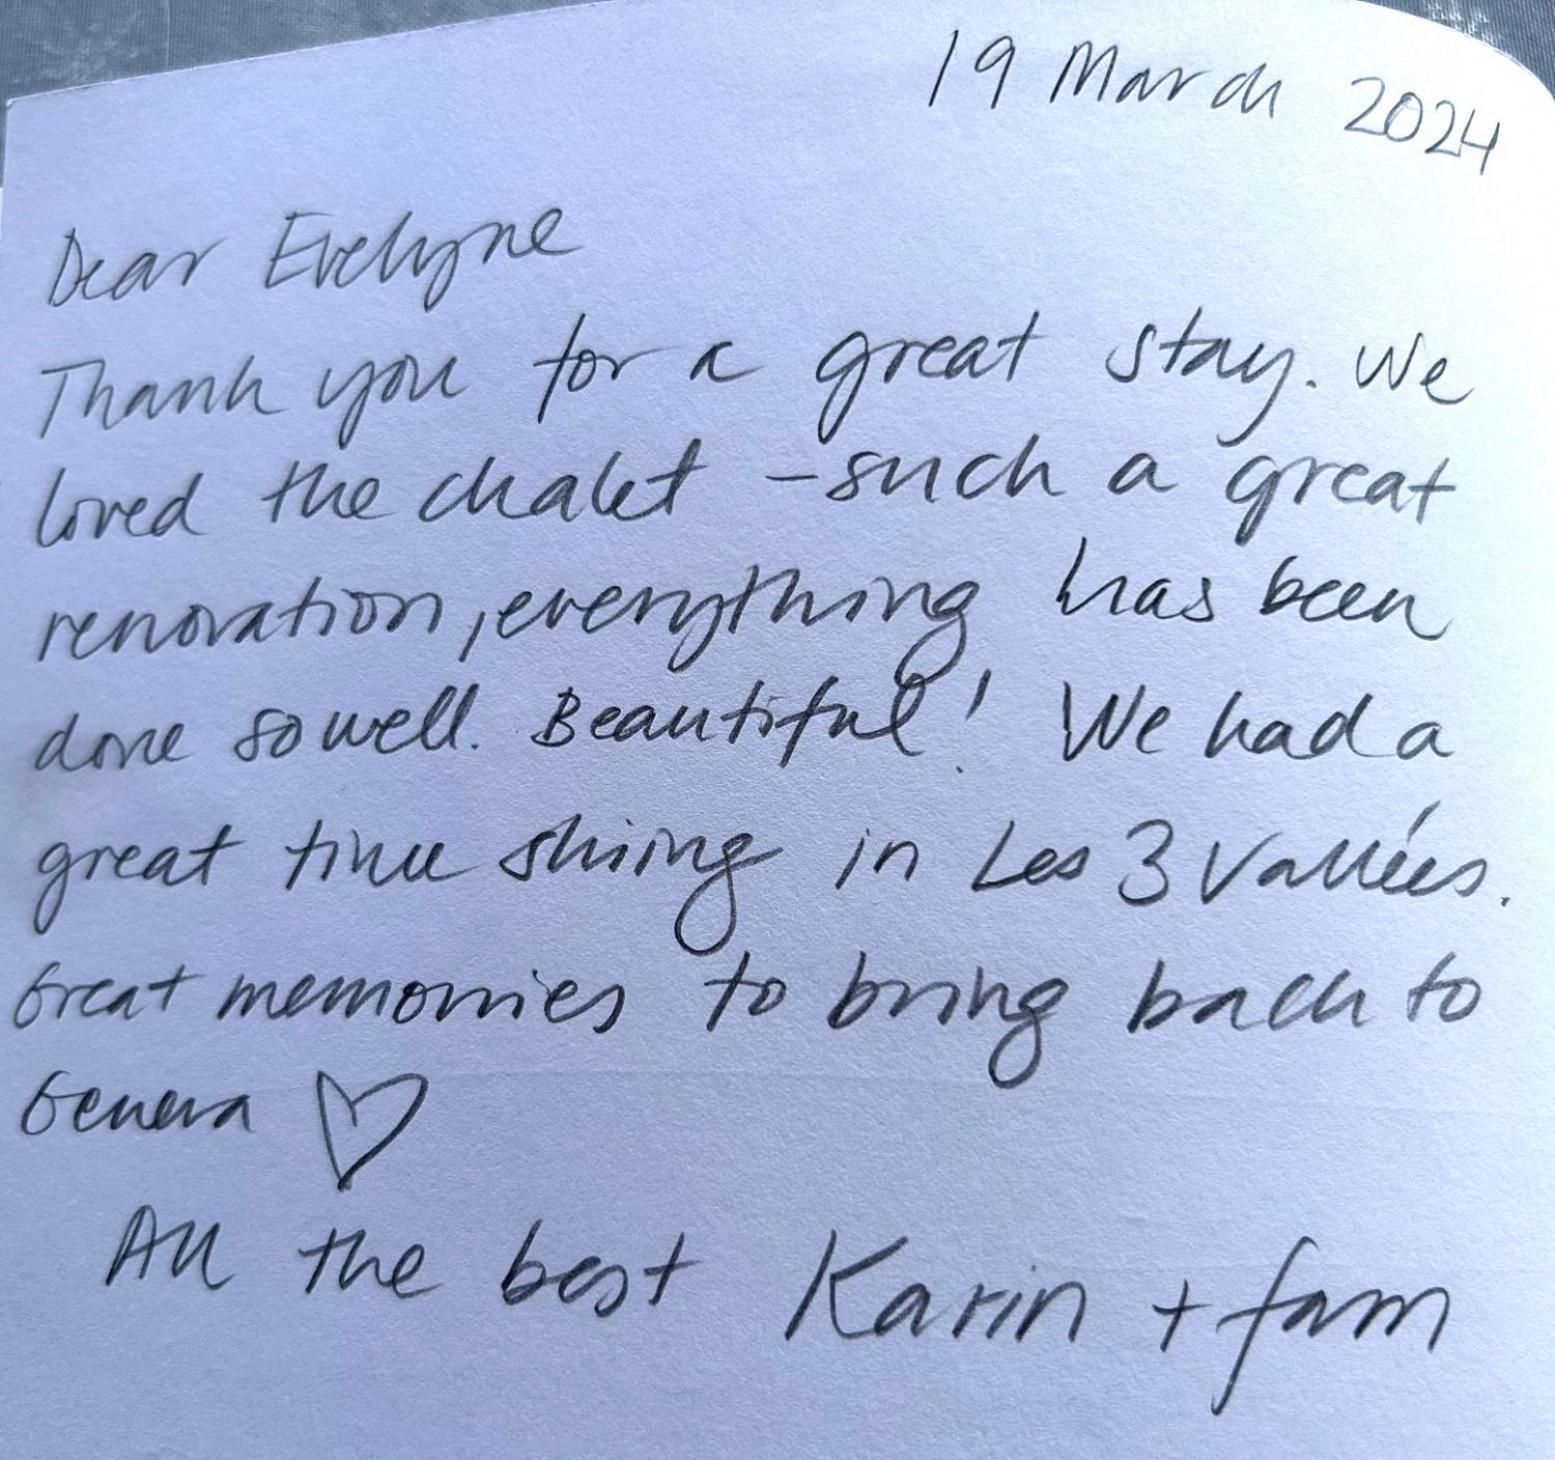 19 March 2024
Dear Evelyne
Thank you for a great stay. We
loved the chalet - such a great
renovation, everything has been
done so well. Beautiful! We had a
great time skiing in Les 3 Vallées.
Great memories to bring back to
Geneva ♡
All the best Karin + fam